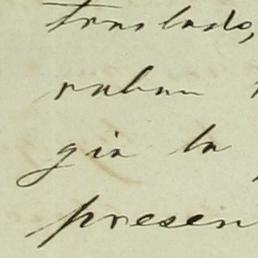 traslado,
raban
gia la
presen